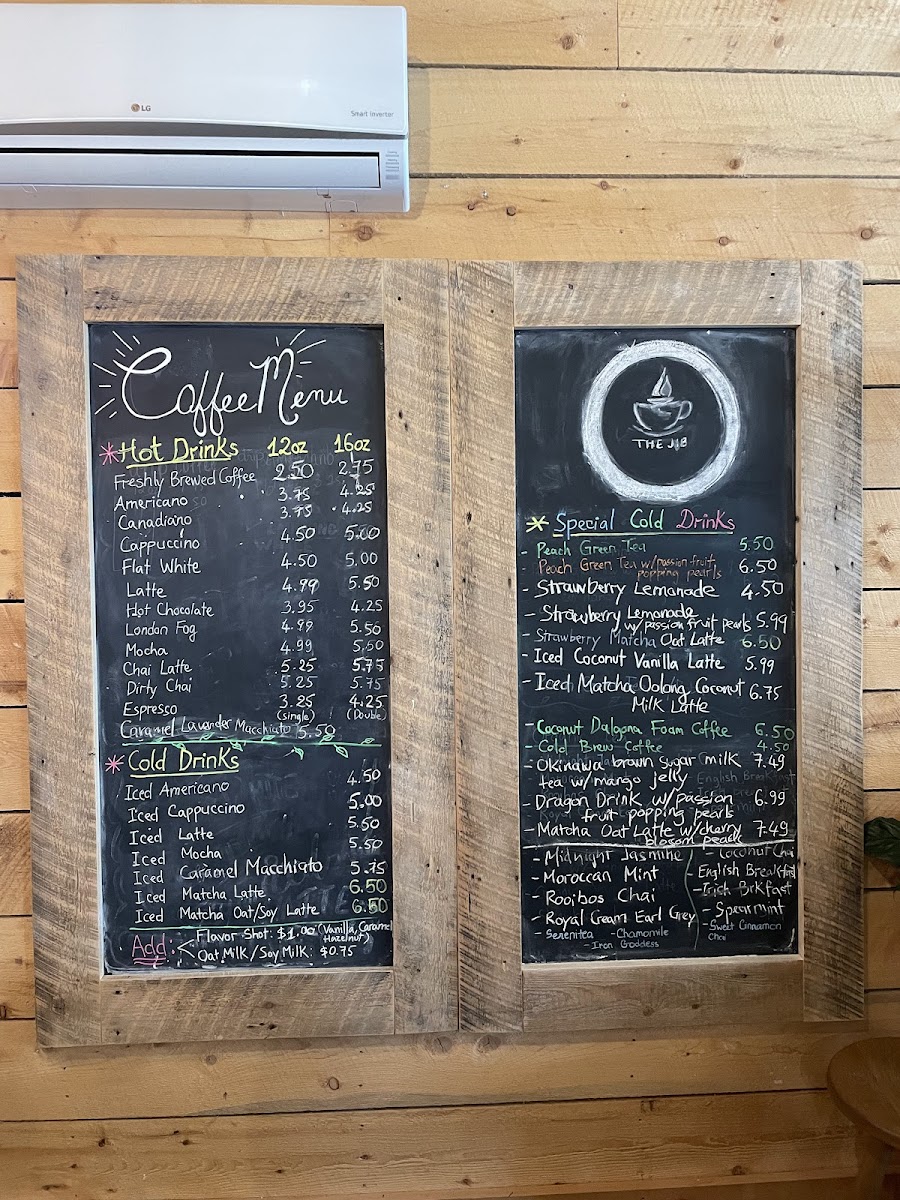 LG
Smart Inverter
Coffee Menu
Hot Drinks 12oz 16oz
Freshly Brewed Coffee 2.50 2.75
Americano 3.75 4.25
Canadiano 3.75 4.25
Cappuccino 4.50 5.00
Flat White 4.50 5.00
Latte 4.99 5.50
Hot Chocolate 3.95 4.25
London Fog 4.99 5.50
Mocha 4.99 5.50
Chai Latte 5.25 5.75
Dirty Chai 5.25 5.75
Espresso 3.25 4.25
(single) (Double)
Caramel Lavander Macchiato 5.50
Cold Drinks
Iced Americano 4.50
Iced Cappuccino 5.00
Iced Latte 5.50
Iced Mocha 5.50
Iced Caramel Macchiato 5.75
Iced Matcha Latte 6.50
Iced Matcha Oat/Soy Latte 6.50
Add Flavor Shot: $1.00 (Vanilla, Caramel
Hazelnut)
Oat Milk/Soy Milk: $0.75
THE JIB
Special Cold Drinks
- Peach Green Tea 5.50
- Peach Green Tea w/passion fruit 6.50
popping pearls
- Strawberry Lemonade 4.50
- Strawberry Lemonade
w/passion fruit pearls 5.99
- Strawberry Matcha Oat Latte 6.50
- Iced Coconut Vanilla Latte 5.99
- Iced Matcha Oolong Coconut 6.75
Milk Latte
- Coconut Dalgona Foam Coffee 6.50
- Cold Brew Coffee 4.50
- Okinawa brown sugar milk 7.49
tea w/ mango jelly
- Dragon Drink w/passion 6.99
fruit popping pearls
- Matcha Oat Latte w/cherry 7.49
blosom pearls
- Midnight Jasmine - Coconut Chai
- Moroccan Mint - English Breakfast
- Rooibos Chai - Irish Brkfast
- Royal Cream Earl Grey - Spearmint
- Serenitea - Chamomile - Sweet Cinnamon
Chai
- Iron Goddess